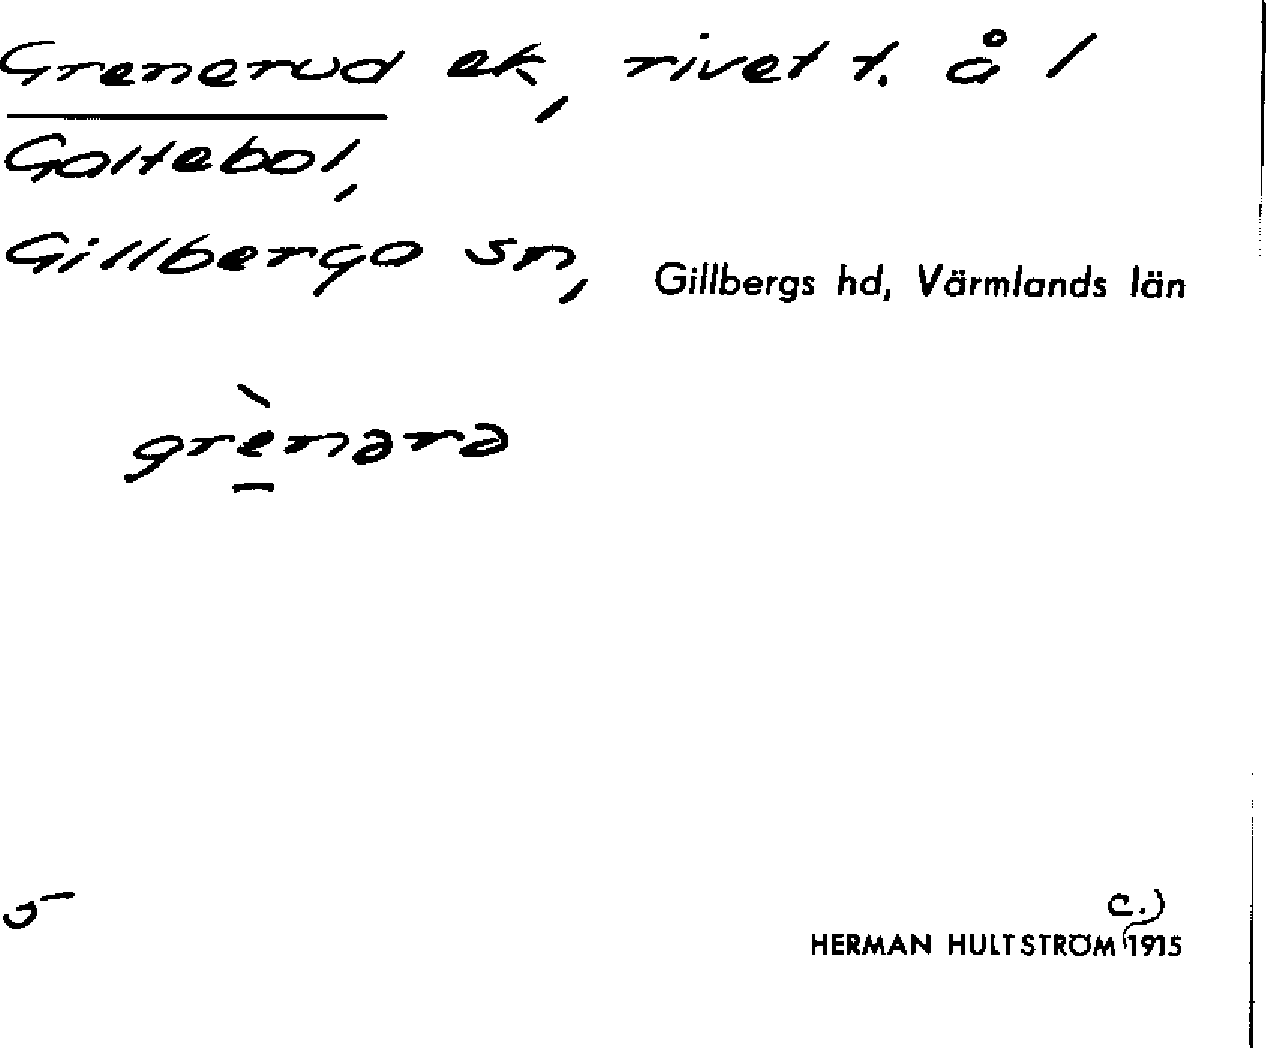 Grenerud ek, rivet t. å 1
Goltebol,
Gillberga sn, Gillbergs hd, Värmlands län
grènərə
5
c.)
HERMAN HULTSTRÖM 1915